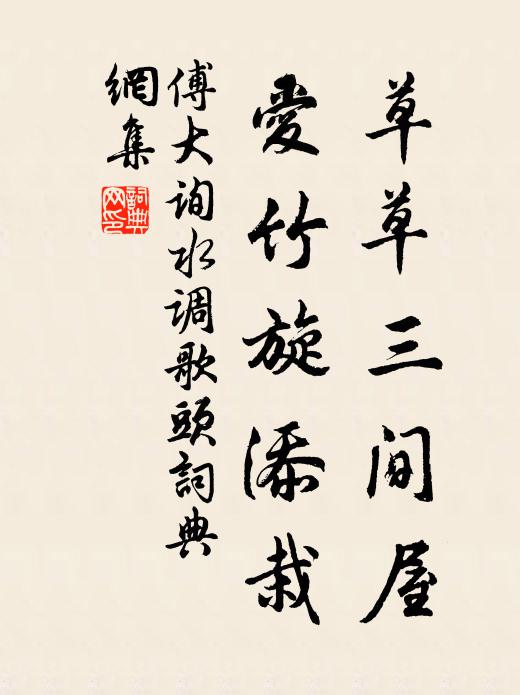 草草三间屋
愛竹旋添栽
傅大询水调歌頭詞典
網集
詞典
网印